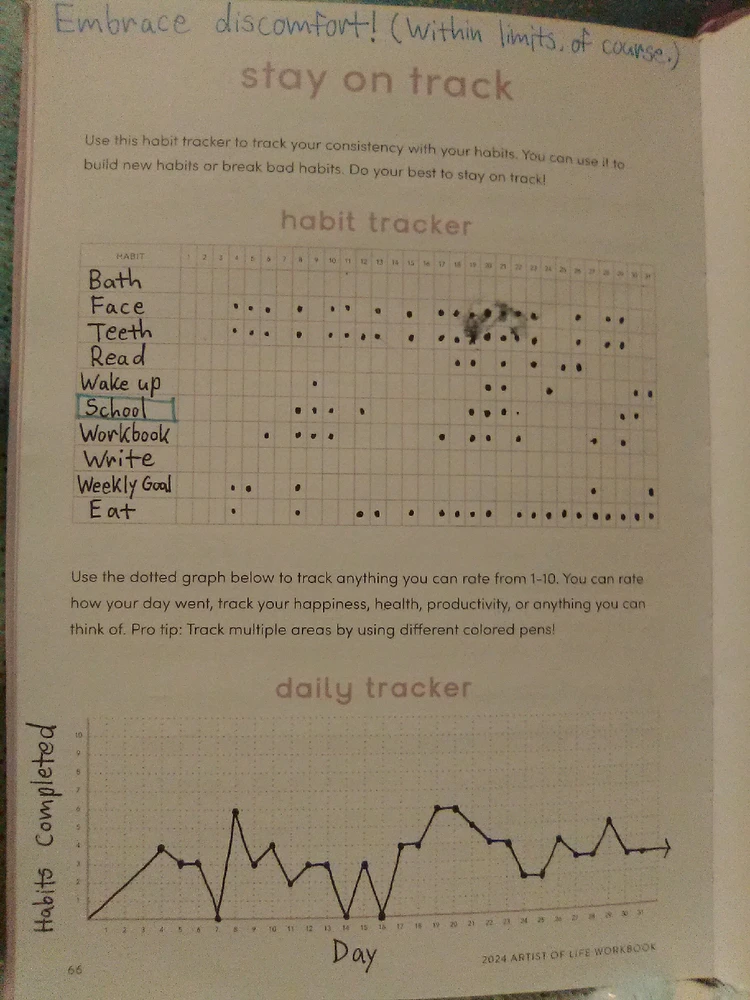 Embrace discomfort! (Within limits, of course.)
stay on track
Use this habit tracker to track your consistency with your habits. You can use it to
build new habits or break bad habits. Do your best to stay on track!
habit tracker
HABIT 1 2 3 4 5 6 7 8 9 10 11 12 13 14 15 16 17 18 19 20 21 22 23 24 25 26 27 28 29 30 31
Bath
Face
Teeth
Read
Wake up
School
Workbook
Write
Weekly Goal
Eat
Use the dotted graph below to track anything you can rate from 1-10. You can rate
how your day went, track your happiness, health, productivity, or anything you can
think of. Pro tip: Track multiple areas by using different colored pens!
daily tracker
Habits Completed
10
9
8
7
6
5
4
3
2
1
1 2 3 4 5 6 7 8 9 10 11 12 13 14 15 16 17 18 19 20 21 22 23 24 25 26 27 28 29 30 31
Day
66
2024 ARTIST OF LIFE WORKBOOK